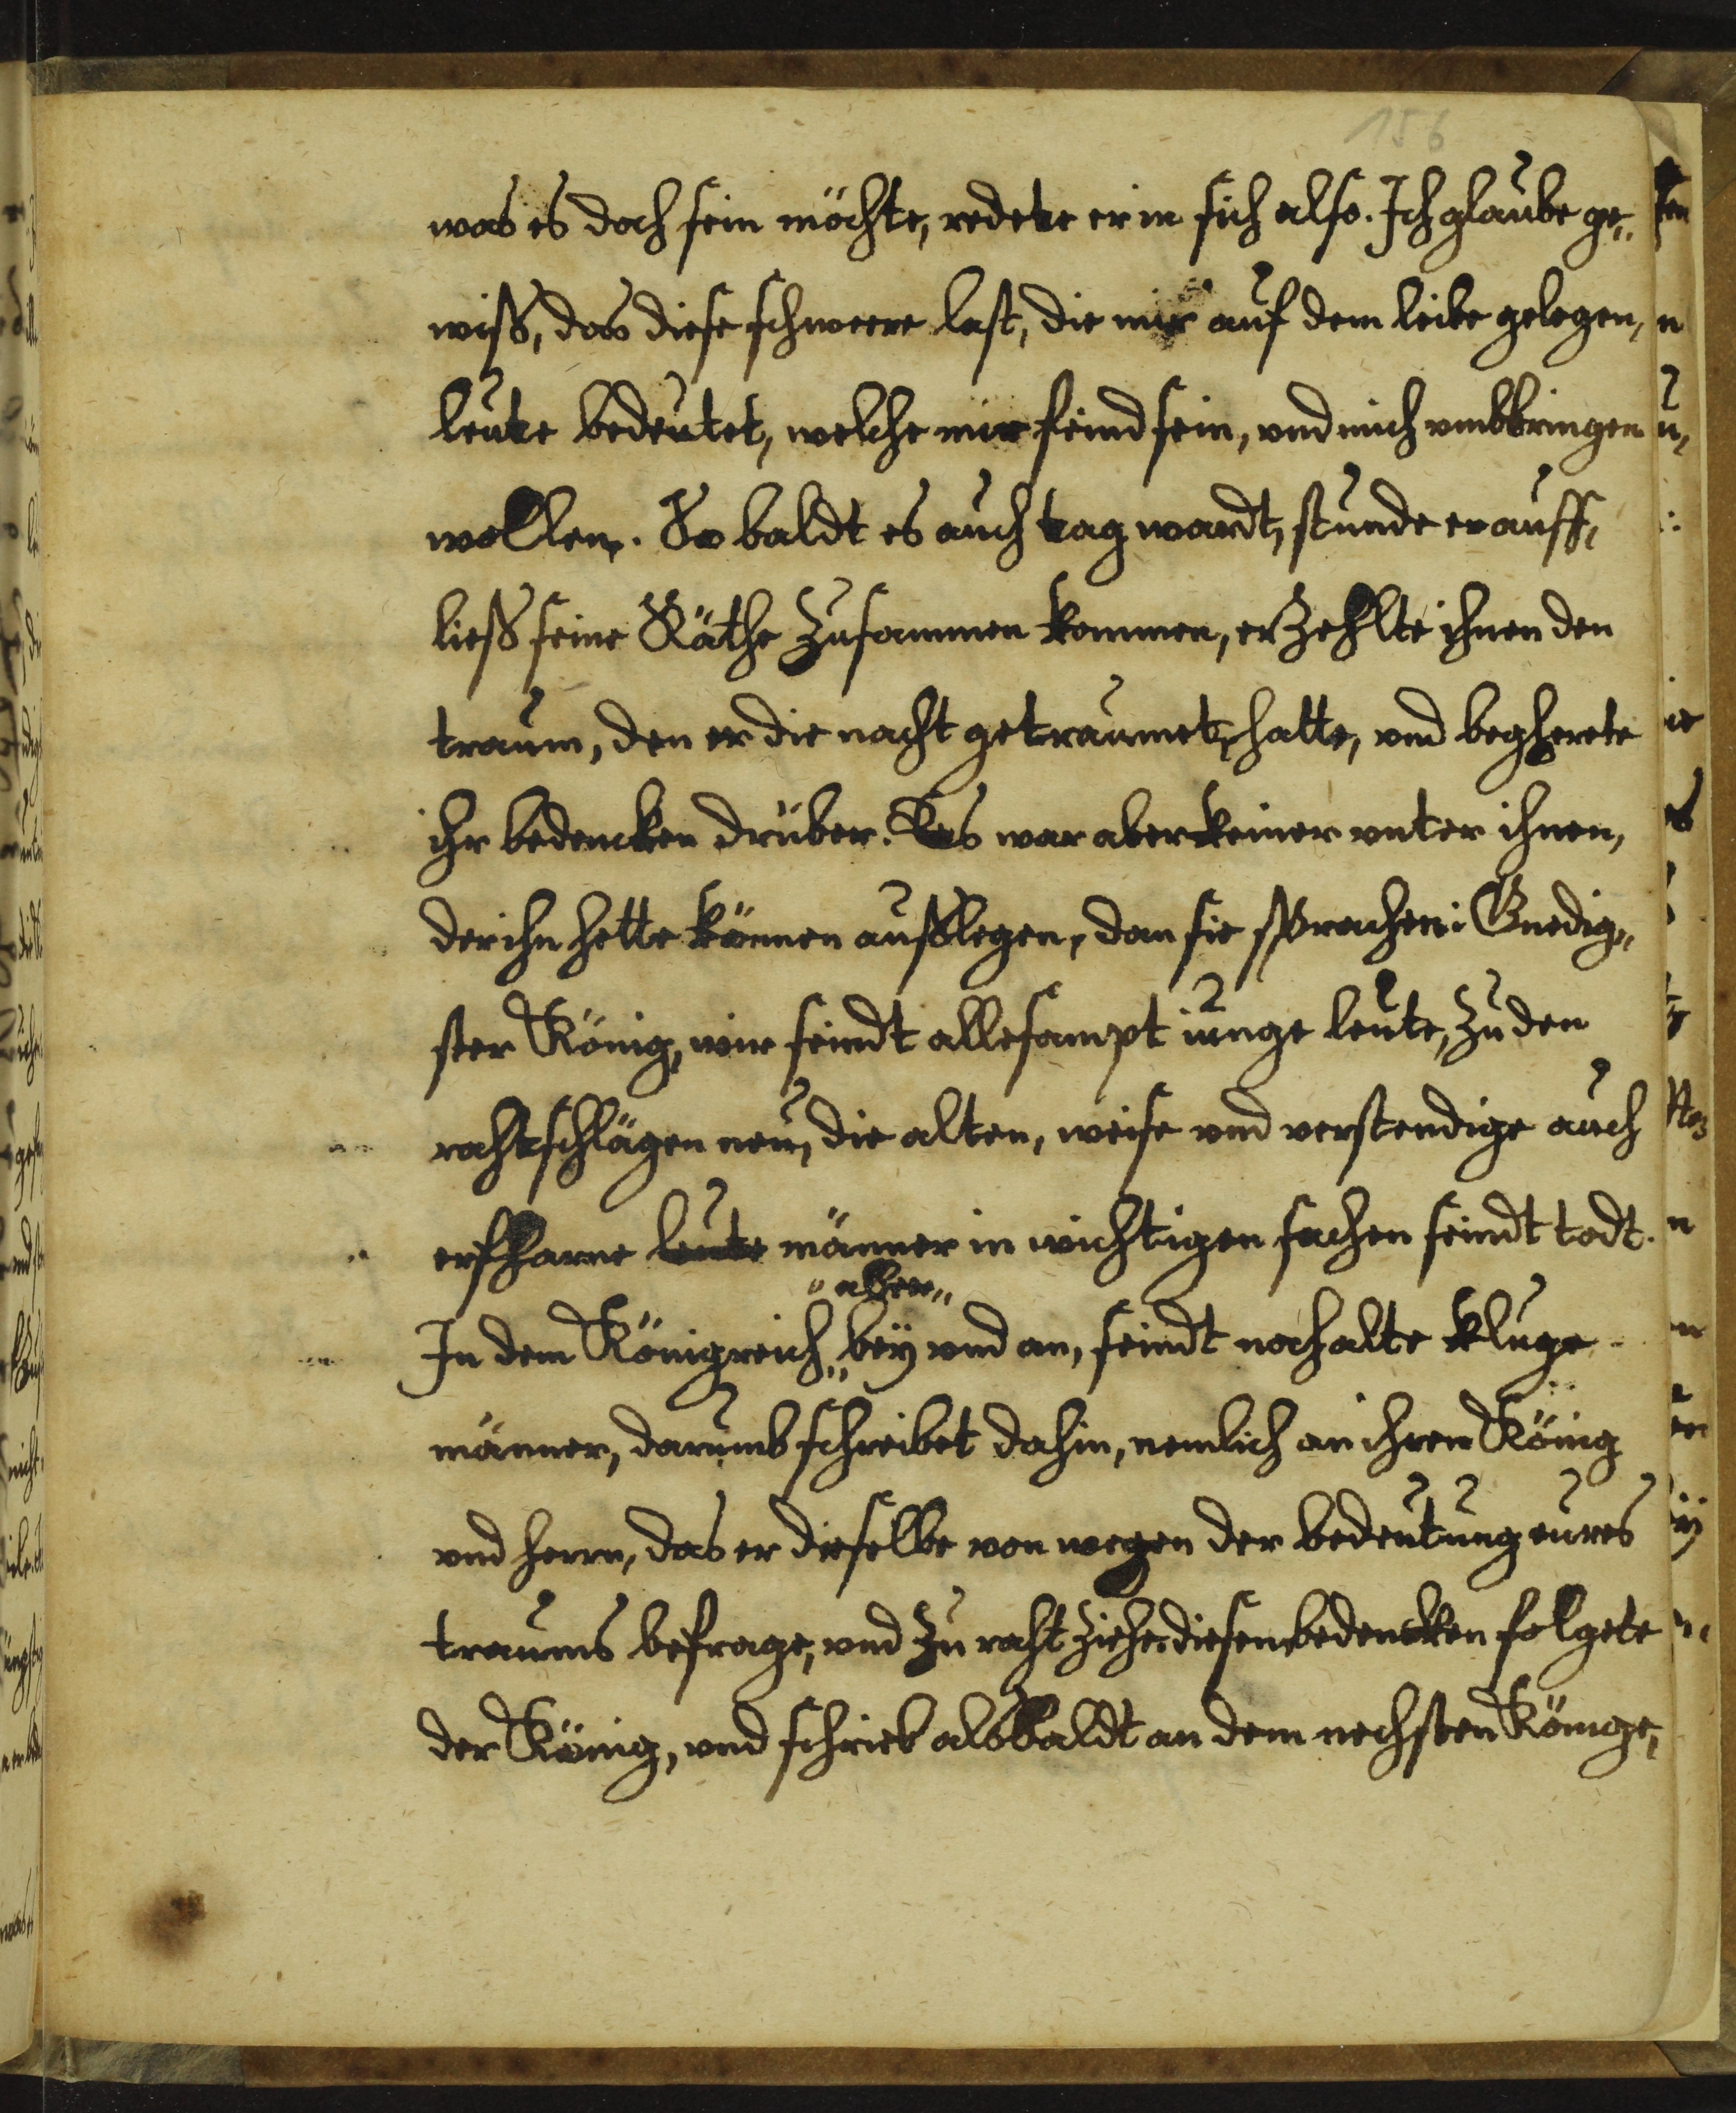 156
was es doch sein möchte, redete er in sich also. Ich glaube ge„
wiß, das diese schweere last, die mir auf dem leibe gelegen,
leute bedeutet, welche mir feind sein, vnd mich vmbbringen
wollen. So baldt es auch tag wardt, stunde er auff,
ließ seine Räthe zusammen kommen, erzehlte ihnen den
traum, den er die nacht getraumet hatte, vnd begherete
ihr bedencken drüber. Es war aber keiner vnter ihnen,
der ihn hette können außlegen, dan sie sprachen: Gnedig„
ster König, wir seindt allesampt iunge leute, zu den
rahtschlägen neu, die alten, weise vnd verstendige auch
erfharne leute männer in wichtigen sachen seindt todt.
„aber„
In dem Königreich „ bey vnd an, seindt noch alte kluge
männer, darumb schreibet dahin, nemlich an ihren König
vnd herrn, das er dieselbe von wegen der bedeutung eures
traums befrage, vnd zu raht ziehe. diesen bedencken folgete
der König, vnd schrieb alsbaldt an dem nechsten Könige,